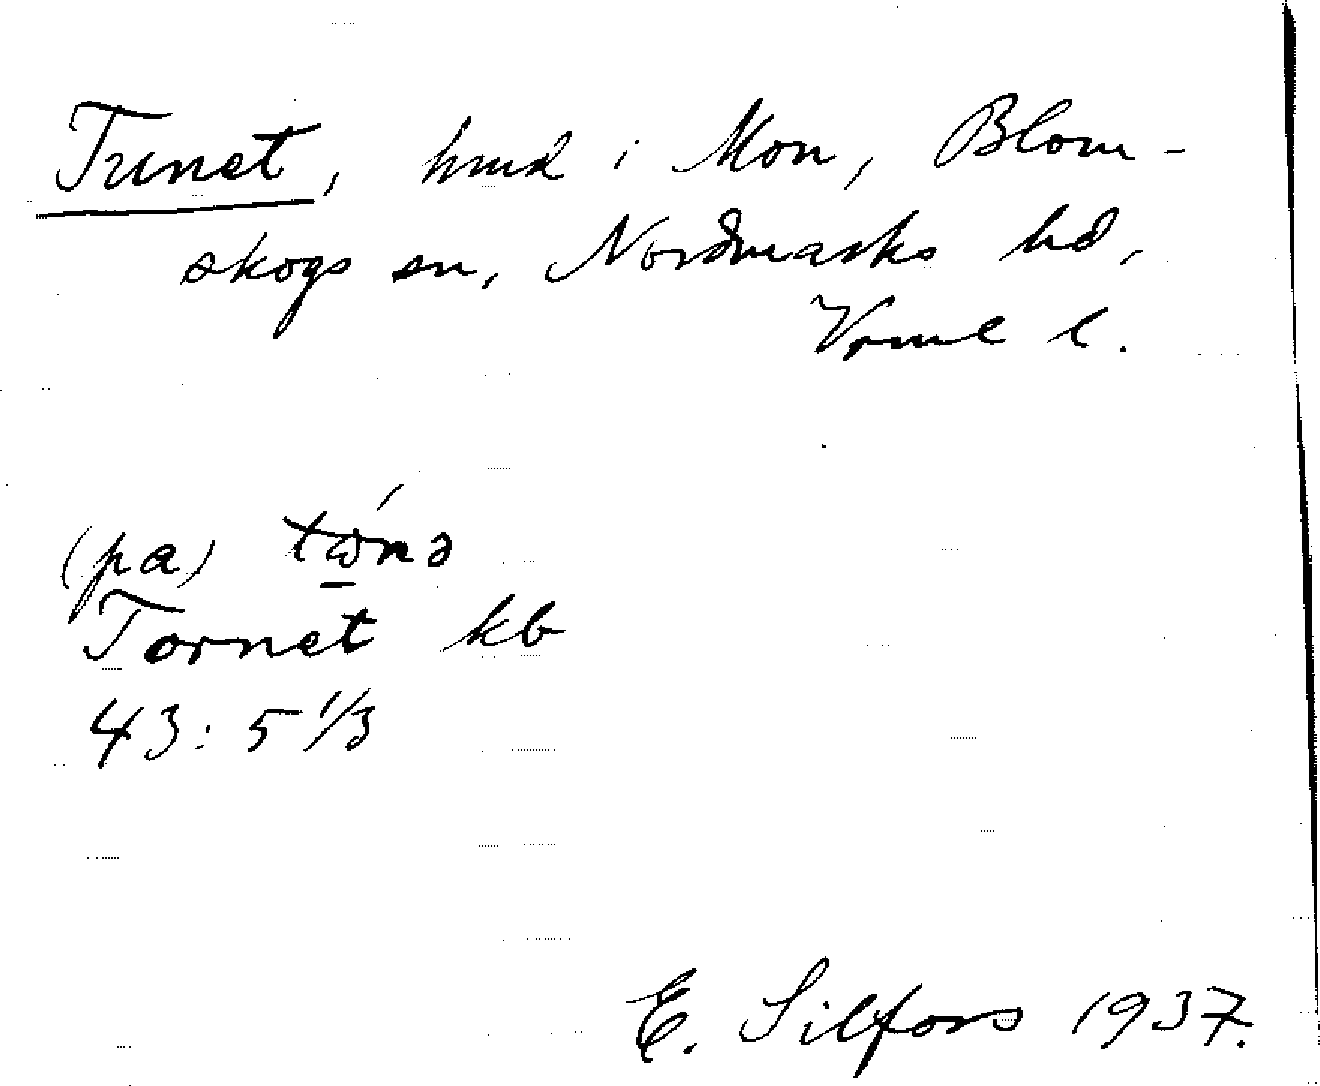 Tunet, hmd i Mon, Blom-
skogs sn, Nordmarks hd,
Vrml l.
(pa) tώ̱nə
Tornet kb
43: 5 1/3
E. Silfors 1937.